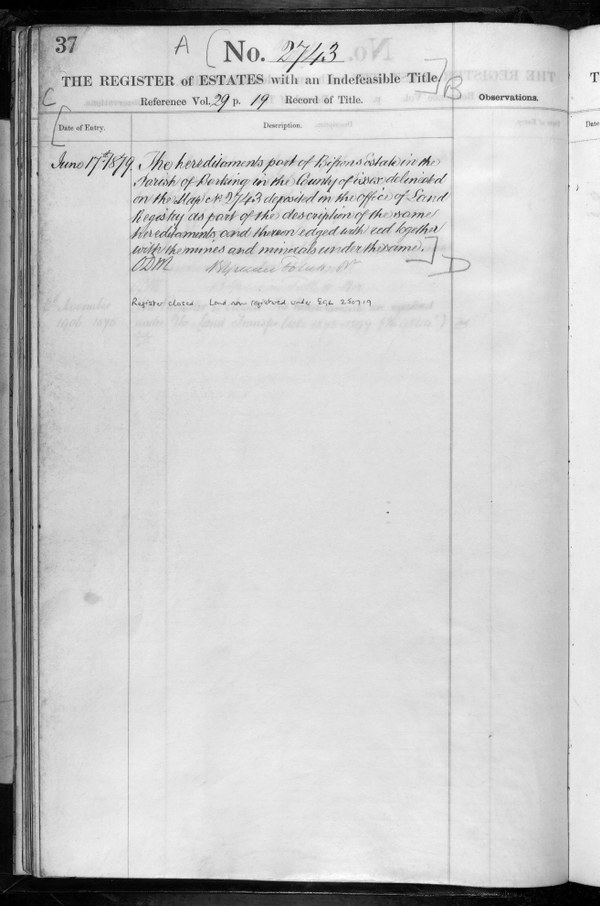 37
A
No. 2743
THE REGISTER of ESTATES with an Indefeasible Title.
B
C
Reference Vol. 29 p. 19 Record of Title.
Observations.
Date of Entry.
Description.
June 17th 1879
The hereditaments part of Bifrons Estate in the
Parish of Barking in the County of Essex delineated
on the Map No. 2743 deposited in the office of Land
Registry as part of the description of the same
hereditaments and thereon edged with red together
with the mines and minerals under the same.
D
Register closed. Land now registered under EGL 250719